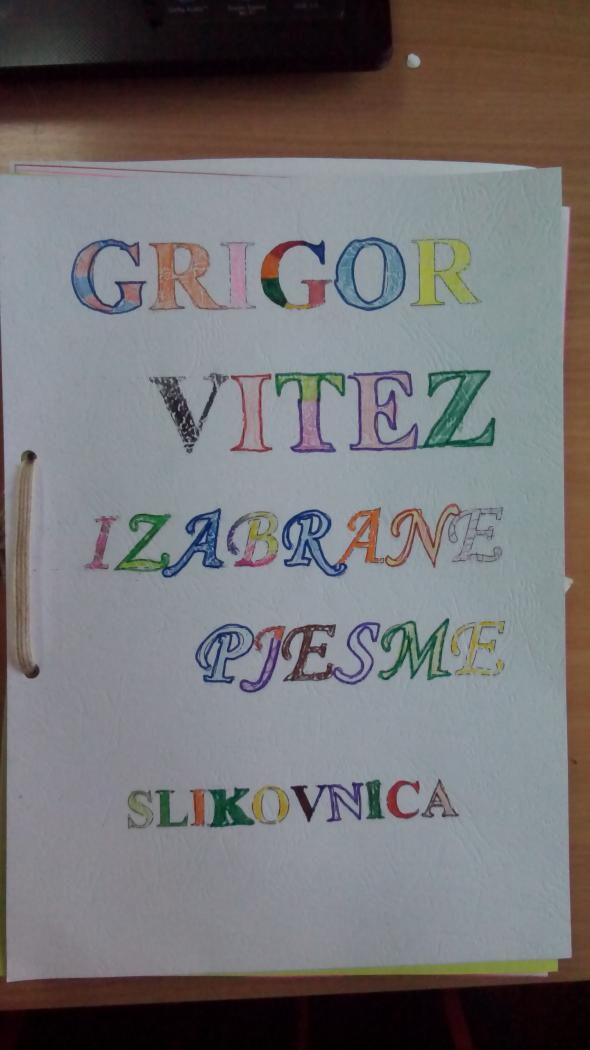 GRIGOR
VITEZ
IZABRANE
PJESME
SLIKOVNICA